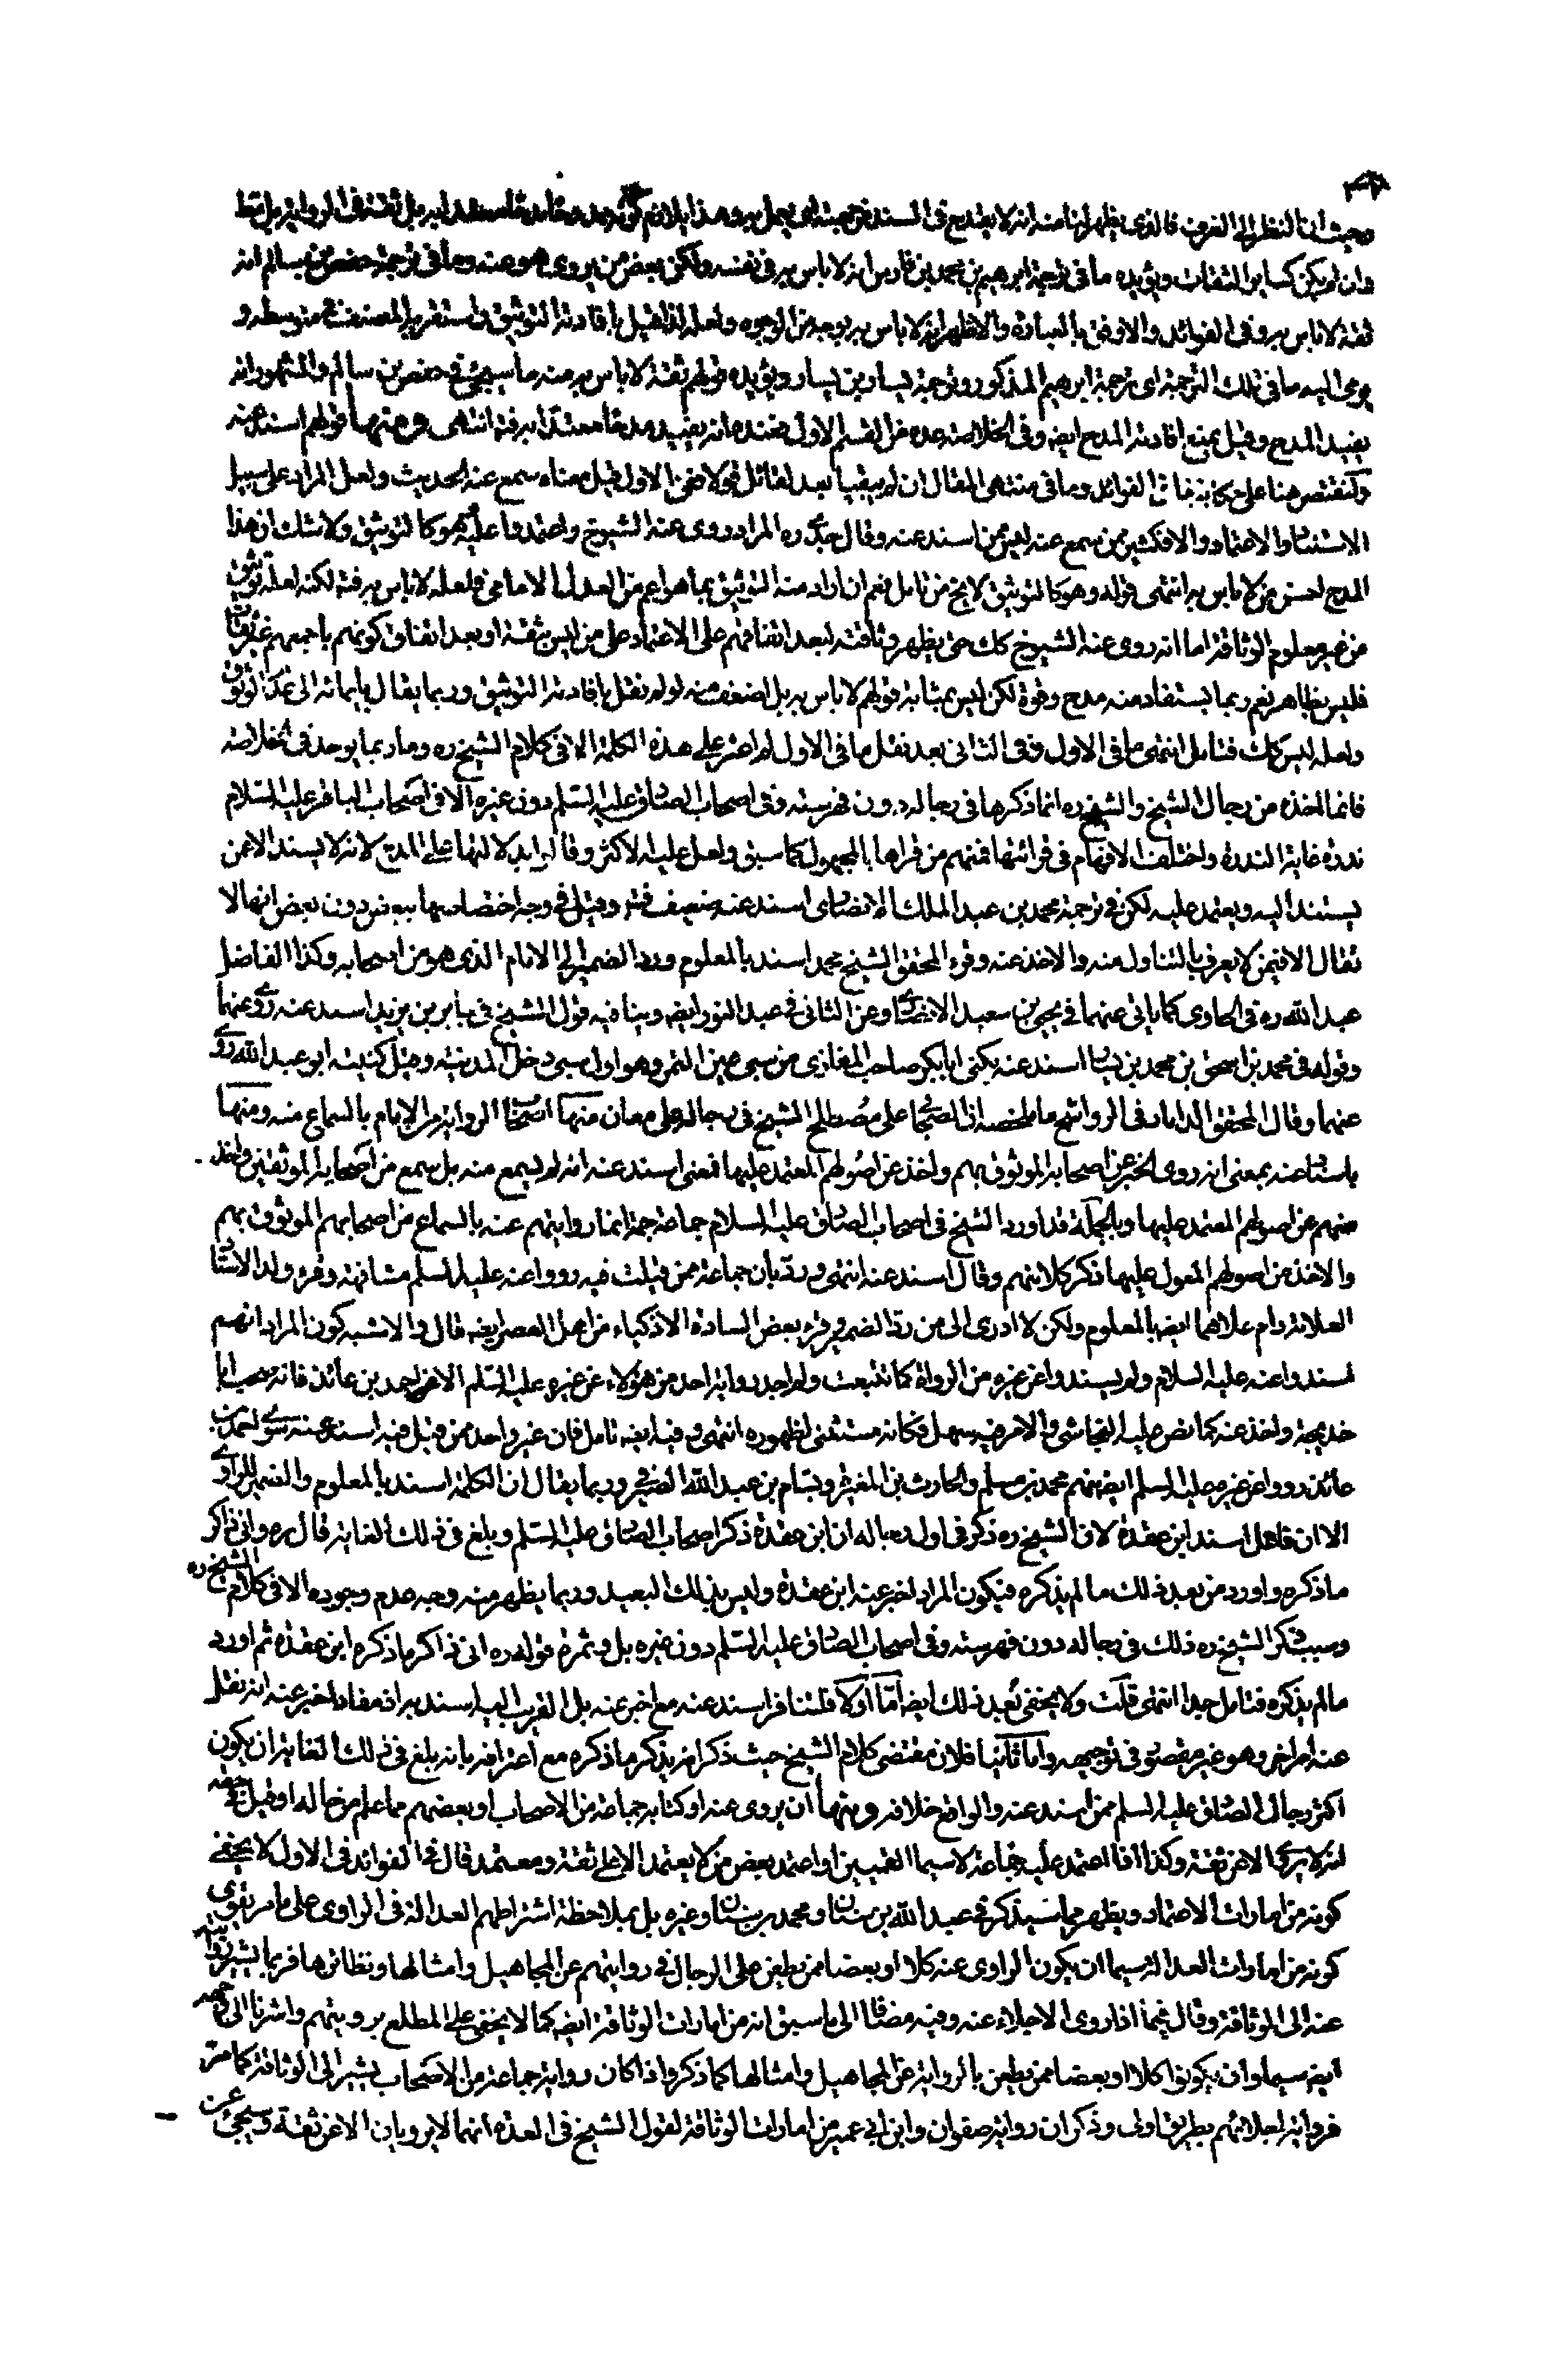 وحيث ان النظر الى العرف فالذى يظهر لنا منه انه لا يقدح فى السند من جهته اى يعمل به وهذا يلازم بل ثقته فى الرواية بل فقط
وان لم يكن كساير الثقات ويؤيده ما فى ترجمة ابرهيم بن محمد بن فارس انه لا باس به فى نفسه ولكن بعض من يروى هو عنه وما فى ترجمة حفص بن سالم انه
ثقة لا باس به وفى الفوائد والاوفق بالعبارة والاظهر انه لا باس به بوجه من الوجوه ولعله لذا قيل بافادته التوثيق واستقر به المصنف فى متوسطه و
يومى اليه ما فى تلك الترجمة اى ترجمة ابرهيم المذكور وترجمة بشار بن يسار ويؤيده قولهم ثقة لا باس به منه ما سيجئ فى حفص بن سالم والمشهور انه
يفيد المدح وقيل بمنع افادته المدح ايضا وفى الخلاصة عده من القسم الاول فعنده انه يفيد مدحا معتدا به فته انتهى ومنها قولهم اسند عنه
ولنقتصر هنا على حكاية ما فى الفوائد وما فى منتهى المقال ان لم يبقيا بعد لقائل قولا ففى الاول قيل معناه سمع عنه الحديث ولعل المراد على سبيل
الاستناد والاعتماد والا فكثير ممن سمع عنه ليس ممن اسند عنه وقال جدى ره المراد روى عنه الشيوخ واعتمدوا عليه وهو كالتوثيق ولا شك ان هذا
المدح احسن من لا باس به انتهى قوله وهو كالتوثيق لا يخ من تامل نعم ان اراد منه التوثيق بما هو اعم من العدل الامامى فلعله لا باس به فته لكنه لعله توثيق
من غير معلوم الوثاقة اما انه روى عنه الشيوخ كك حتى يظهر وثاقته لبعد اتفاقهم على الاعتماد على من ليس بثقة او بعد اتفاق كونهم باجمعهم غير ثقات
فليس بظاهر نعم ربما يستفاد منه مدح وقوة لكن ليس بمثابة قولهم لا باس به بل اضعف منه لو لم نقل بافادته التوثيق وربما يقال بايمائه الى عدم الوثوق
ولعله ليس كك فتامل انتهى ما فى الاول وفى الثانى بعد نقل ما فى الاول لم اعثر على هذه الكلمة الا فى كلام الشيخ ره وما ربما يوجد فى الخلاصة
فانما اخذه من رجال الشيخ والشيخ ره انما ذكرها فى رجاله دون فهرسته وفى اصحاب الصادق عليه السلم دون غيره الا فى اصحاب الباقر عليه السلام
ندرة غاية الندرة واختلف الافهام فى قرائتها فمنهم من قراها بالمجهول كما سبق ولعل عليه الاكثر وقالوا بدلالتها على المدح لانه لا يسند الا عمن
يستند اليه ويعتمد عليه لكن فى ترجمة محمد بن عبد الملك الانصارى اسند عنه ضعيف فته وقيل فى وجه اختصاصها ببعض دون بعض انها لا
تقال الا فيمن لا يعرف بالتناول منه والاخذ عنه وقرء المحقق الشيخ محمد اسند بالمعلوم ورد الضمير الى الامام الذى هو من اصحابه وكذا الفاضل
عبد الله ره فى الحاوى كما ياتى عنهما فى يحيى بن سعيد الانصارى وعن الثانى فى عبد النور ايضا وينافيه قول الشيخ فى جابر بن يزيد اسند عنه روى عنهما
وقوله فى محمد بن اسحق بن محمد بن يسار اسند عنه يكنى ابا بكر صاحب المغازى من سبى عين التمر وهو اول سبى دخل المدينة وقيل كنيته ابو عبد الله روى
عنهما وقال المحقق الداماد فى الرواشح ما ملخصه ان الصحابى على مصطلح الشيخ فى رجاله على معان منها اصحاب الرواية عن الامام بالسماع منه ومنها
باسناد عنه بمعنى انه روى الخبر عن اصحابه الموثوق بهم واخذ عن اصولهم المعتمد عليها فمعنى اسند عنه انه لم يسمع منه بل سمع من اصحابه الموثقين واخذ
منهم عن اصولهم المعتمد عليها وبالجملة قد اورد الشيخ فى اصحاب الصادق عليه السلام جماعة جمة انما روايتهم عنه بالسماع من اصحابهم الموثوق بهم
والاخذ من اصولهم المعول عليها ذكر كلا منهم وقال اسند عنه انتهى ورد بان جماعة ممن قيلت فيه رووا عنه عليه السلم مشافهة وقرء ولد الاستاد
العلامة دام علاهما ايضا بالمعلوم ولكن لا ادرى الى من رد الضمير وقرء بعض السادة الاذكياء من اهل العصر ايضا قال والاشبه كون المراد انهم
اسندوا عنه عليه السلام ولم يسندوا عن غيره من الرواة كما تتبعت ولم اجد رواية احد من هؤلاء عن غيره عليه السلم الا احمد بن عائذ فانه صحب ابا
خديجة واخذ عنه كما نص عليه النجاشى والامر فيه سهل فكانه مستثنى لظهوره انتهى وفيه ايضا تامل فان غير واحد ممن قيل فيه اسند عنه سوى احمد بن
عائذ رووا عن غيره عليه السلم ايضا منهم محمد بن مسلم والحارث بن المغيرة وبسام بن عبد الله الصيرفى وربما يقال ان الكلمة اسند بالمعلوم والضمير للراوى
الا ان فاعل اسند ابن عقدة لان الشيخ ره ذكر فى اول رجاله ان ابن عقدة ذكر اصحاب الصادق عليه السلم وبلغ فى ذلك الغاية قال ره وانى ذاكر
ما ذكره واورد من بعد ذلك ما لم يذكره فيكون المراد اخبر عنه ابن عقدة وليس بذلك البعيد وربما يظهر منه وجه عدم وجوده الا فى كلام الشيخ ره
وسبب ذكر الشيخ ره ذلك فى رجاله دون فهرسته وفى اصحاب الصادق عليه السلم دون غيره بل وثمرة قوله ره انى ذاكر ما ذكره ابن عقدة ثم اورد
ما لم يذكره فتامل جدا انتهى قلت ولا يخفى بعد ذلك ايضا اما اولا فلتنافر اسند عنه مع اخبر عنه بل القريب اليه اسند به اذ مفاد اخبر عنه انه نقل
عنه امرا خر وهو غير مقصود فى توجيهه واما ثانيا فلان مقتضى كلام الشيخ حيث ذكر انه يذكر ما ذكره مع اعترافه بانه بلغ فى ذلك الغاية ان يكون
اكثر رجال الصادق عليه السلم ممن اسند عنه والواقع خلافه ومنها ان يروى عنه او كتابه جماعة من الاصحاب او بعضهم مما علم من حاله او قيل فى حقه
انه لا يروى الا عن ثقة وكذا اذا اعتمد عليه جماعة لا سيما القميين او اعتمد بعض من لا يعتمد الا على ثقة ومعتمد قال فى الفوائد فى الاول لا يخفى
كونه من امارات الاعتماد ويظهر مما سيذكر فى عبد الله بن سنان ومحمد بن سنان وغيره بل بملاحظة اشتراطهم العدالة فى الراوى على ما مر يقوى
كونه من امارات العدالة سيما ان يكون الراوى عنه كلا او بعضا ممن يطعن على الرجال فى روايتهم عن المجاهيل وامثالها ونظائرها فربما يشير روايته
عنه الى الوثاقة وقال فيما اذا روى الاجلاء عنه وفيه مضافا الى ما سبق انه من امارات الوثاقة ايضا كما لا يخفى على المطلع برويتهم واشرنا الى وجهه
ايضا سيما وان يكونوا كلا او بعضا ممن يطعن بالرواية عن المجاهيل وامثالها كما ذكر واذا كان رواية جماعة من الاصحاب يشير الى الوثاقة كما مر
فرواية اجلائهم بطريق اولى وذكر ان رواية صفوان وابن ابى عمير من امارات الوثاقة لقول الشيخ فى العدة انهما لا يرويان الا عن ثقة وسيجئ عن